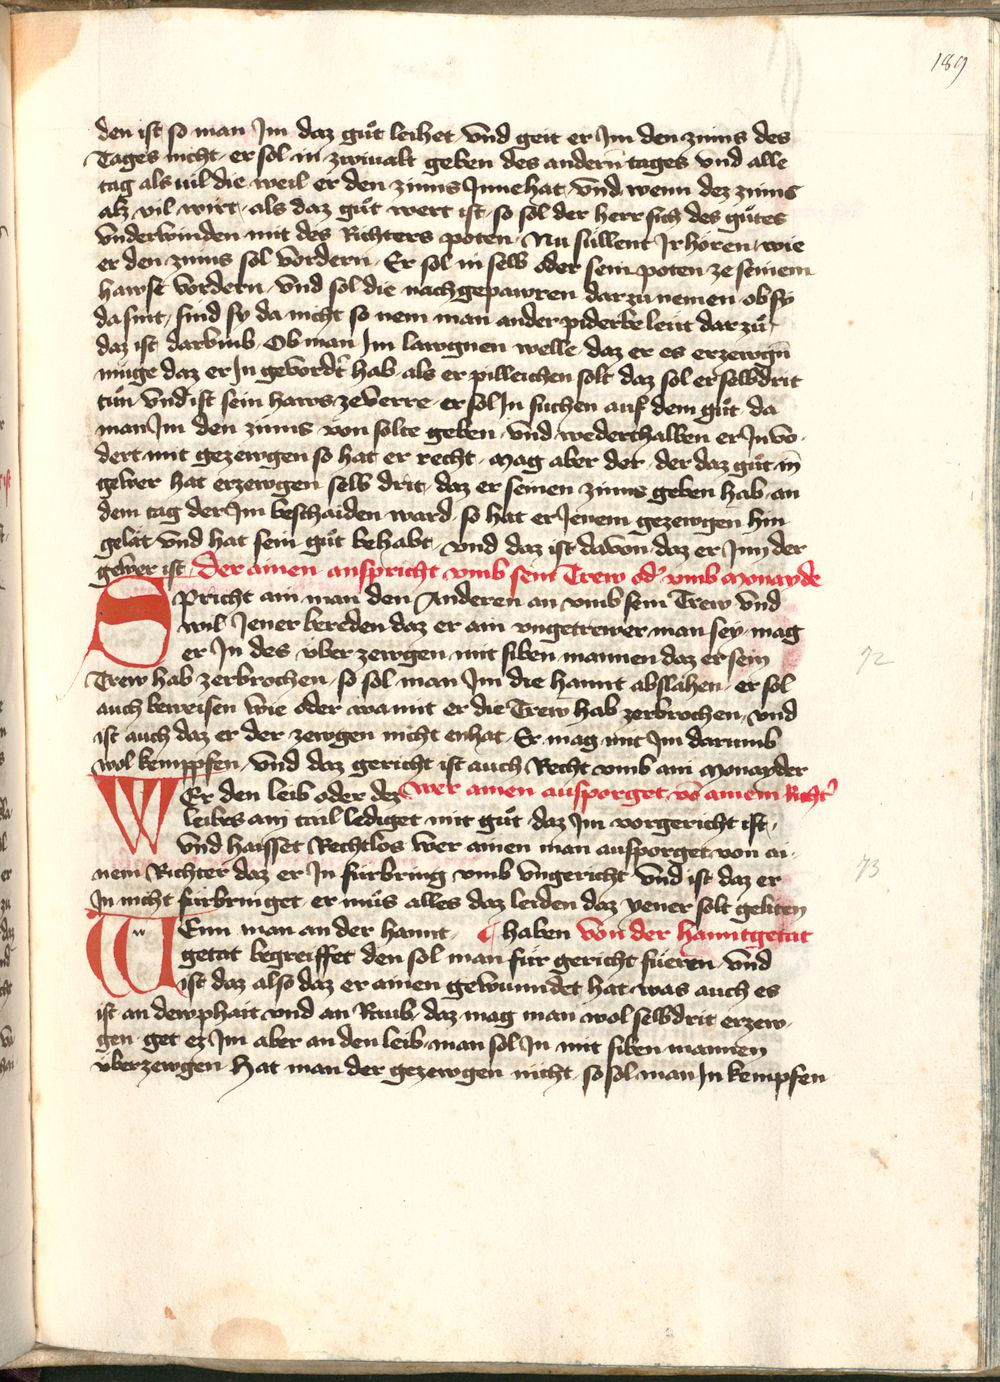 189
den ist so man Im daz gůt leihet vnd geit er Im den zinns des
Tages nicht er sol in zwiualt geben des andern tages vnd alle
tag als uil die weil er den zinns Inne hat vnd wenn dez zinns
alz vil wirt als daz gůt wert ist so sol der herr sich des gůtes
vnderwinden mit des Richters poten Nu süllent Ir hören wie
er den zinns sol vordern Er sol in selb oder sein poten ze seinem
hawse vordern vnd sol die nachgepawren darzu nemen ob sy
da sint sind sy da nicht so nem man ander piderbe leüt dar zů
daz ist darvmb Ob man Im lawgnen welle daz er es erzewgn
müge daz er In gevordt hab als er pilleichen solt daz sol er selbdrit
tůn vnd ist sein haws ze verre er sol In suchen auf dem gůt da
man Im den zinns von solte geben vnd wederthalben er In vo-
dert mit gezewgen so hat er recht Mag aber der der daz gůt in
gewer hat erzewgen selb drit daz er seinen zinns geben hab an
dem tag der Im beschaiden ward so hat er Jenem gezewgen hin
gelät vnd hat sein gůt behabt vnd daz ist davon daz er Inn der
gewer ist Der ainen anspricht vmb sein Trew od vmb Monayde
Spricht ain man den Anderen an vmb sein Trew vnd
wil Jener bereden daz er ain vngetrewer man sey mag
er In des vber zewgen mit siben mannen daz er sein
72
Trew hab zerbrochen so sol man Im die hannt abslahen er sol
auch beweisen wie oder wa mit er die Trew hab zerbrochen vnd
ist auch daz er der zewgen nicht enhat Er mag mit Im darumb
wol kemppfen vnd daz gericht ist auch Recht vmb ain Monayder
WEr den leib oder dez Wer ainen ausporget vō ainem Richt
leibes ain tail lediget mit gůt daz Im vorgericht ist
vnd haisset Rechtlos wer ainen man ausporget von ai-
73
nem Richter daz er In fürbring vmb vngericht vnd ist daz er
In nicht fürbringet er můs alles daz leiden daz yener solt geliten
WEnn man an der hannt ¶ haben Von der hanntgetat
getat begreiffet den sol man für gericht füeren vnd
ist daz also daz er ainen gewunndet hat was auch es
ist an dewphait vnd an Raub daz mag man wol selbdrit erzew-
gen get ez Im aber an den leib man sol In mit siben mannen
vberzewgen Hat man der gezewgen nicht so sol man In kempfen